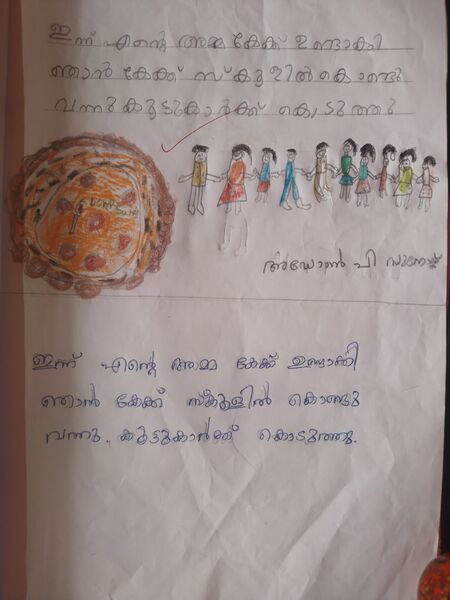 ഇന്ന് എന്റെ അമ്മ കേക്ക് ഉണ്ടാകി
ഞാൻ കേക്ക് സ്കൂളിൽ കൊണ്ടു
വന്നു കൂട്ടുകാർക്ക് കൊടുത്തു
അഡോൺ പി
ഇന്ന് എന്റെ അമ്മ കേക്ക് ഉണ്ടാക്കി
ഞാൻ കേക്ക് സ്കൂളിൽ കൊണ്ടു
വന്നു.. കൂട്ടുകാർക്ക് കൊടുത്തു.